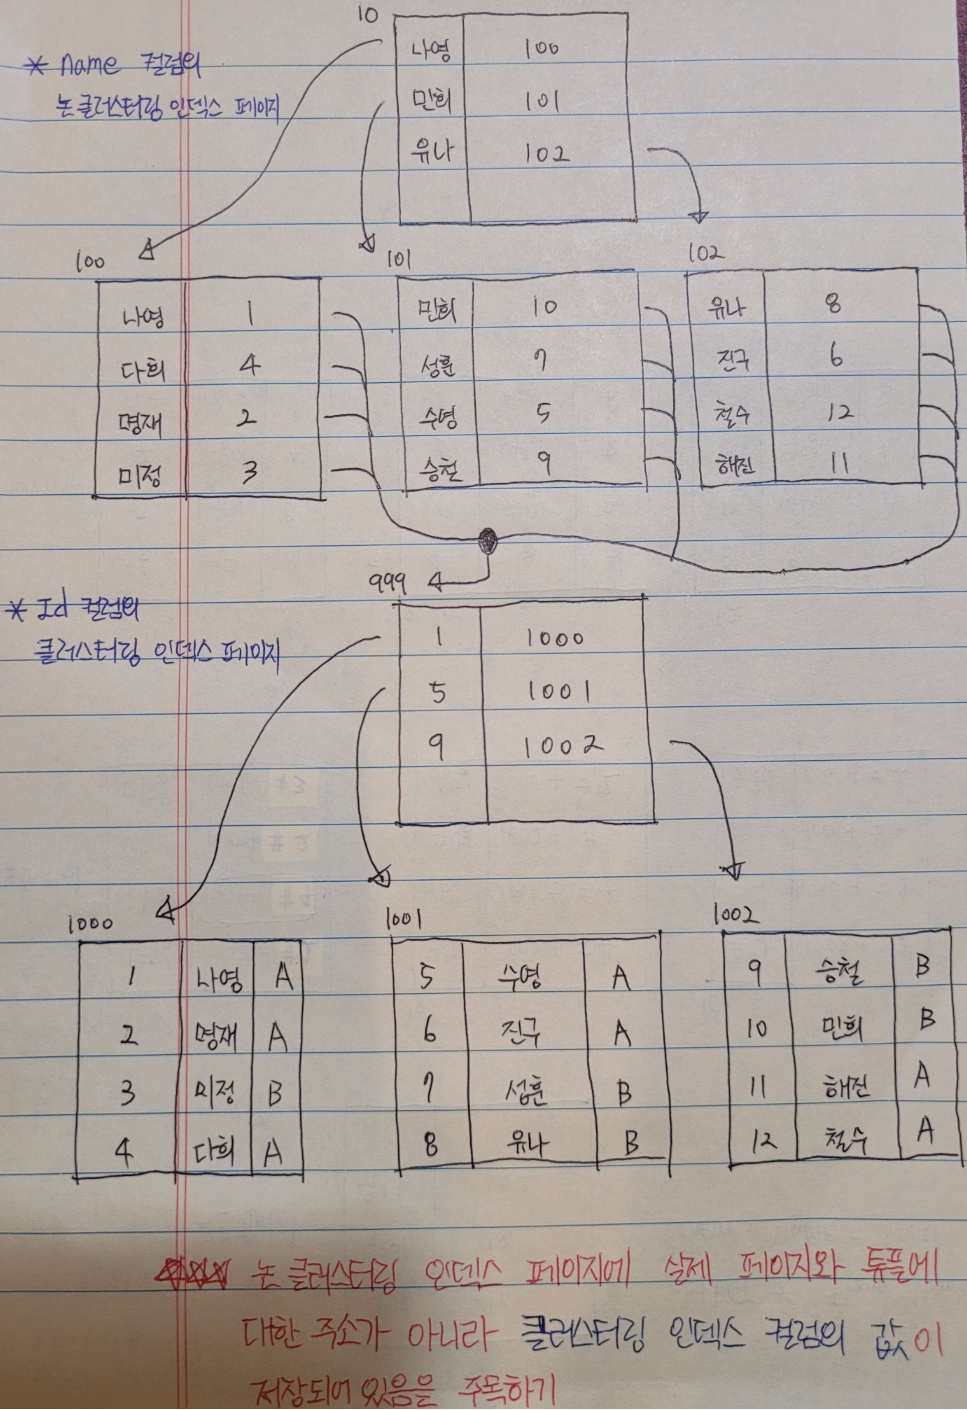 10
* Name 컬럼의
논클러스터링 인덱스 페이지
나영 100
민희 101
유나 102
100
나영 1
다희 4
명재 2
미정 3
101
민희 10
성훈 7
수영 5
승철 9
102
유나 8
진구 6
철수 12
해진 11
* Id 컬럼의
클러스터링 인덱스 페이지
999
1 1000
5 1001
9 1002
1000
1 나영 A
2 명재 A
3 미정 B
4 다희 A
1001
5 수영 A
6 진구 A
7 성훈 B
8 유나 B
1002
9 승철 B
10 민희 B
11 해진 A
12 철수 A
☆☆☆ 논클러스터링 인덱스 페이지에 실제 페이지와 튜플에
대한 주소가 아니라 클러스터링 인덱스 컬럼의 값이
저장되어 있음을 주목하기